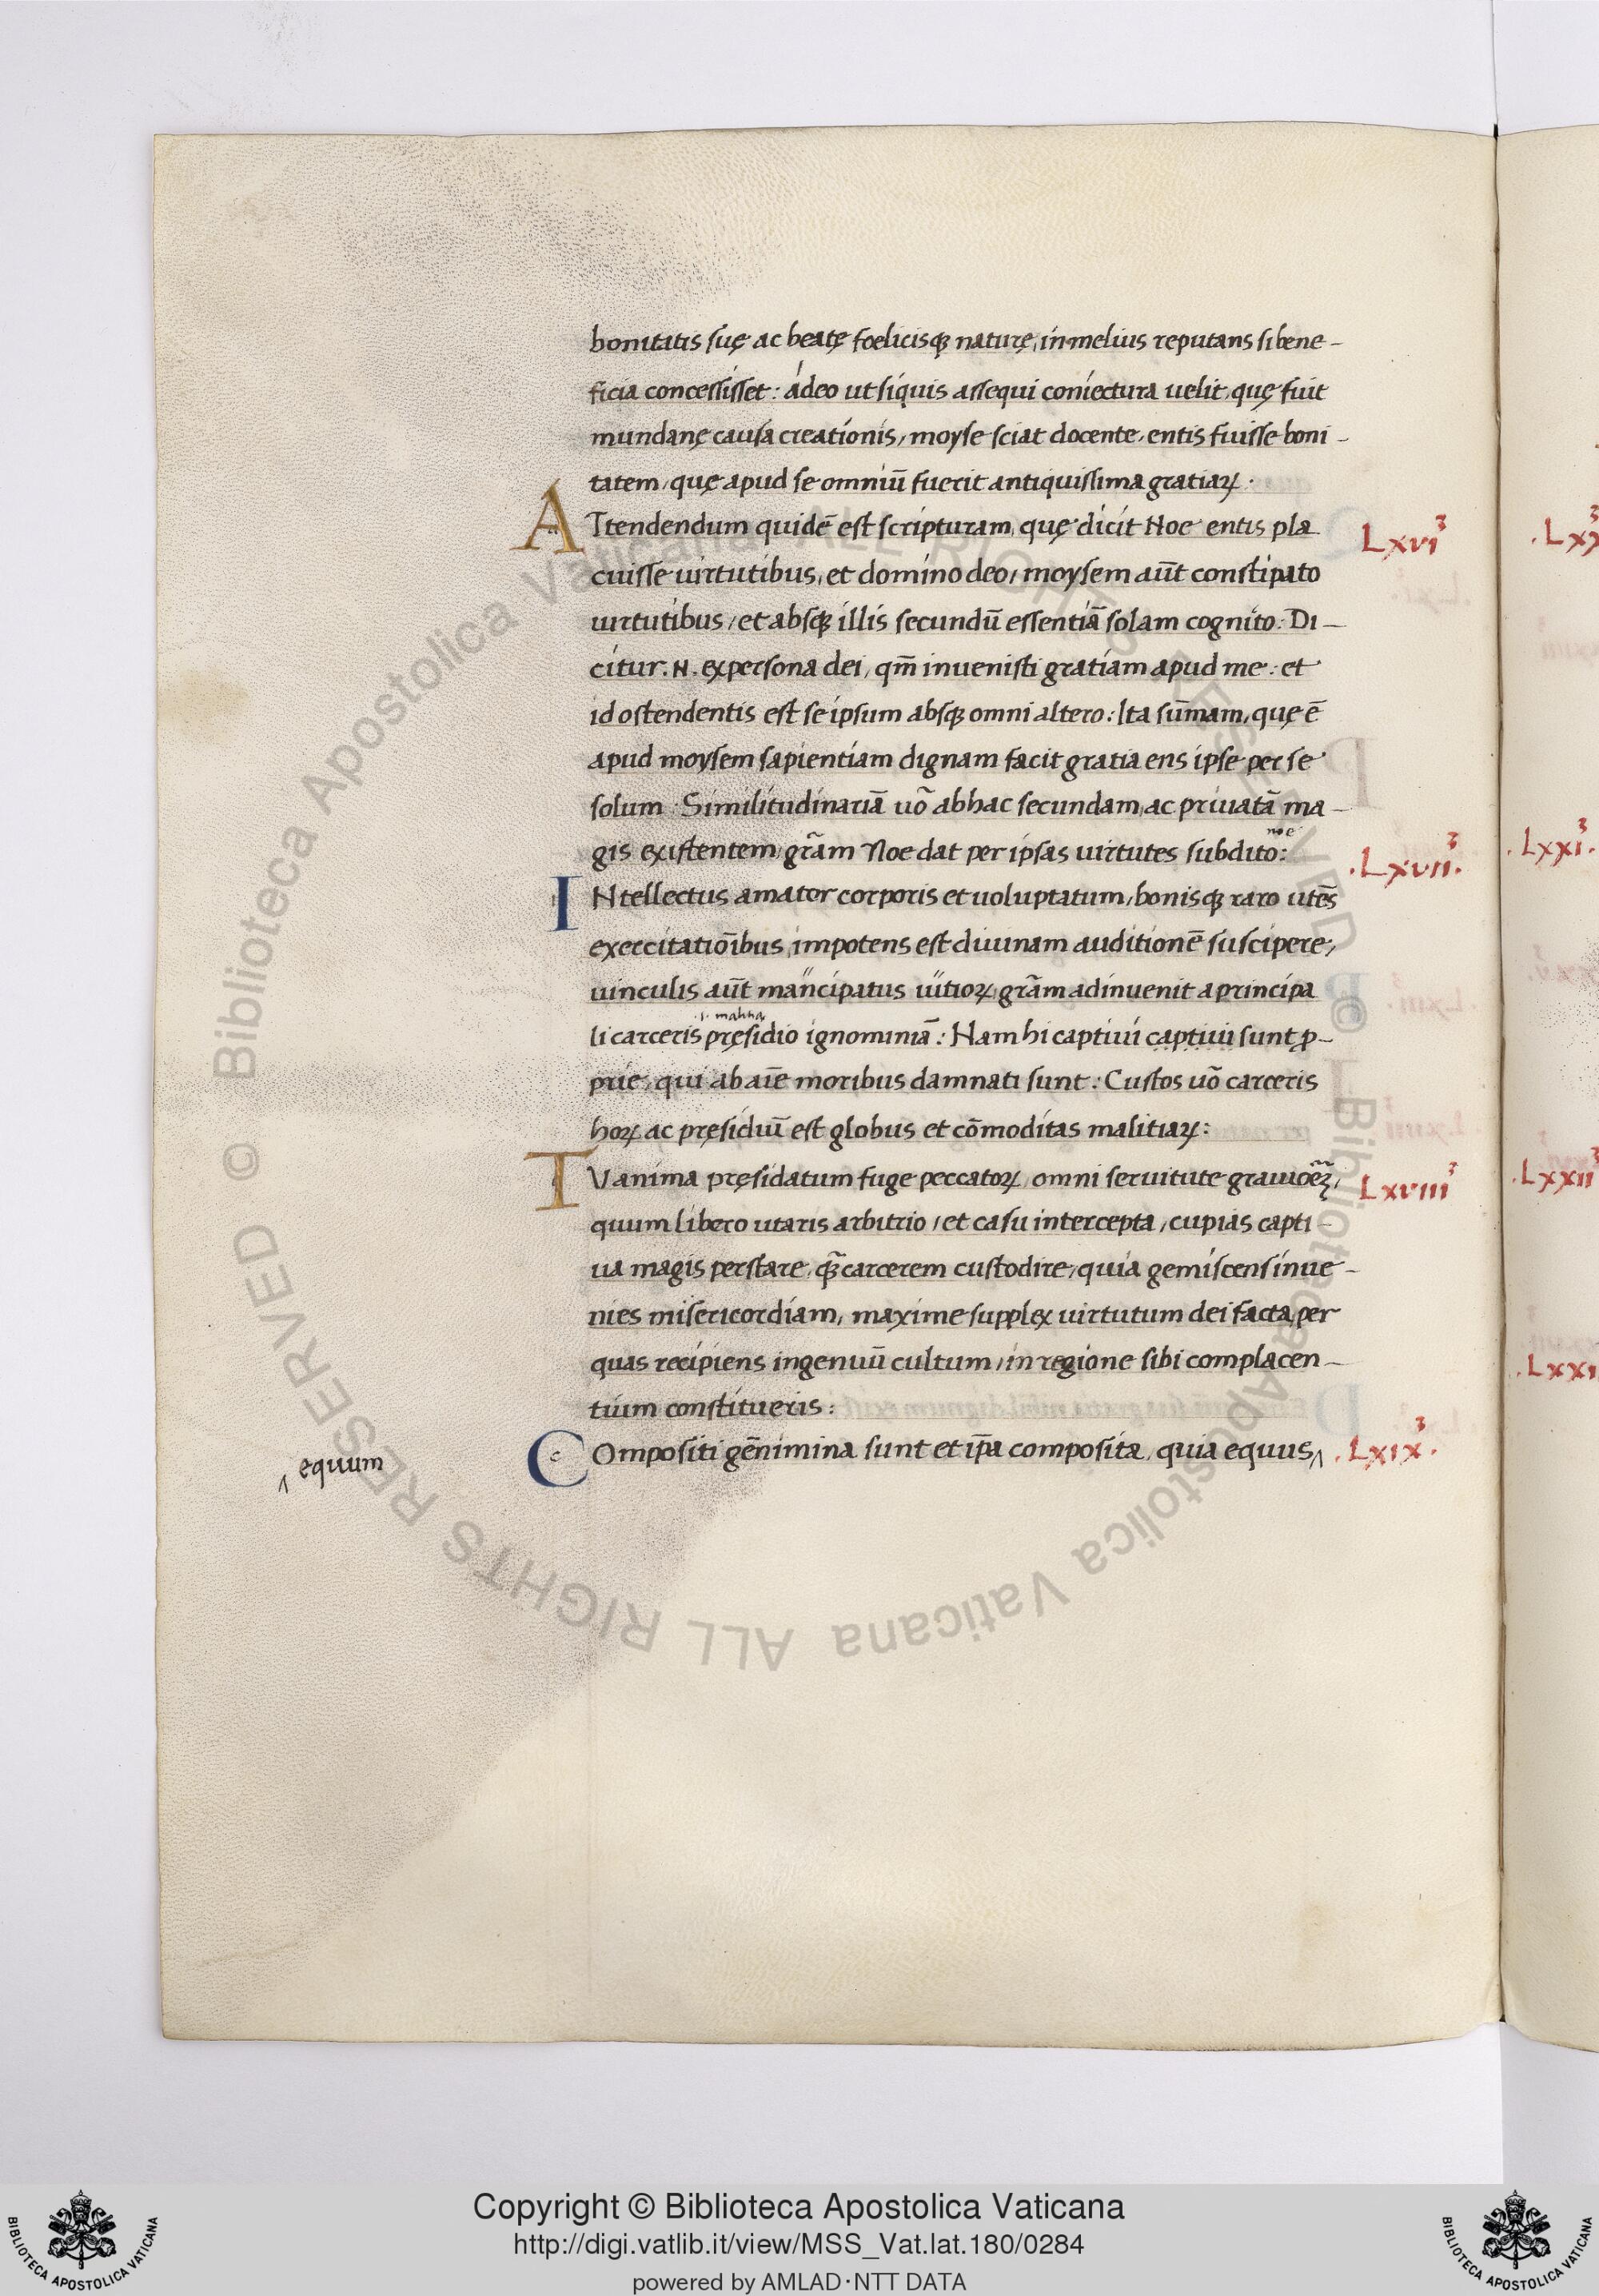 bonitatis suę ac beatę foelicisqꝫ naturę, in melius reputans si bene-
ficia concessisset: ádeo ut síquis assequi coniectura uelit, quę fuit
mundanę causa creationis, moyse sciat docente, entis fuisse boni-
tatem, quę apud se omniū fuerit antiquissima gratiaꝝ.
ATtendendum quidē est scripturam, quę dicit Noe entis pla LXVI
cuisse uirtutibus, et domino deo, moysem aūt constipato
uirtutibus, et absqꝫ illis secundū essentiā solam cognito: Di-
citur .N. ex persona dei, qm̄ inuenisti gratiam apud me: et
id ostendentis est se ipsum absqꝫ omni altero: Ita sūmam, quę ē
apud moysem sapientiam dignam facit gratia ens ipse per se
solum: Similitudinariā uō ab hac secundam, ac priuatā ma-
gis existentem, grām Noe dat per ipsas uirtutes subdito: noe .LXVII.
INtellectus amator corporis et uoluptatum, bonisqꝫ raro utēs
exercitatiōibus, impotens est diuinam auditionē suscipere,
uinculis aūt mancipatus uitioꝝ, grām adinuenit a principa
li carceris pręsidio ignominiā: Nam hi captiui captiui sunt ꝓ-
prie, qui ab aīe moribus damnati sunt: Custos uō carceris
hoꝝ ac pręsidiū est globus et cōmoditas malitiaꝝ:
TV anima pręsidatum fuge peccatoꝝ, omni seruitute grauiōeꝫ, LXVIII
quum libero utaris arbitrio, et casu intercepta, cupias capti-
ua magis perstare, qꝫ̄ carcerem custodire, quia gemiscens inue-
nies misericordiam, maxime supplex uirtutum dei facta, per
quas recipiens ingenuū cultum, in regione sibi complacen-
tium constitueris:
COmpositi gēnimina sunt et ip̄a composita, quia equus‸ .LXIX.
‸ equum
.LXX
.LXXI.
.LXXII
.LXXI
Copyright © Biblioteca Apostolica Vaticana
http://digi.vatlib.it/view/MSS_Vat.lat.180/0284
powered by AMLAD·NTT DATA
BIBLIOTECA APOSTOLICA VATICANA
BIBLIOTECA APOSTOLICA VATICANA
© Biblioteca Apostolica Vaticana ALL RIGHTS RESERVED © Biblioteca Apostolica Vaticana ALL RIGHTS RESERVED